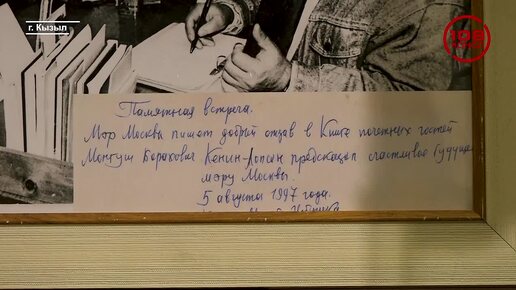 г. Кызыл
Памятная встреча.
Мэр Москвы пишет добрый отзыв в Книге почетных гостей
Монгуш Борахович Кенин-Лопсан предсказал счастливое будущее
мэру Москвы.
5 августа 1997 года.